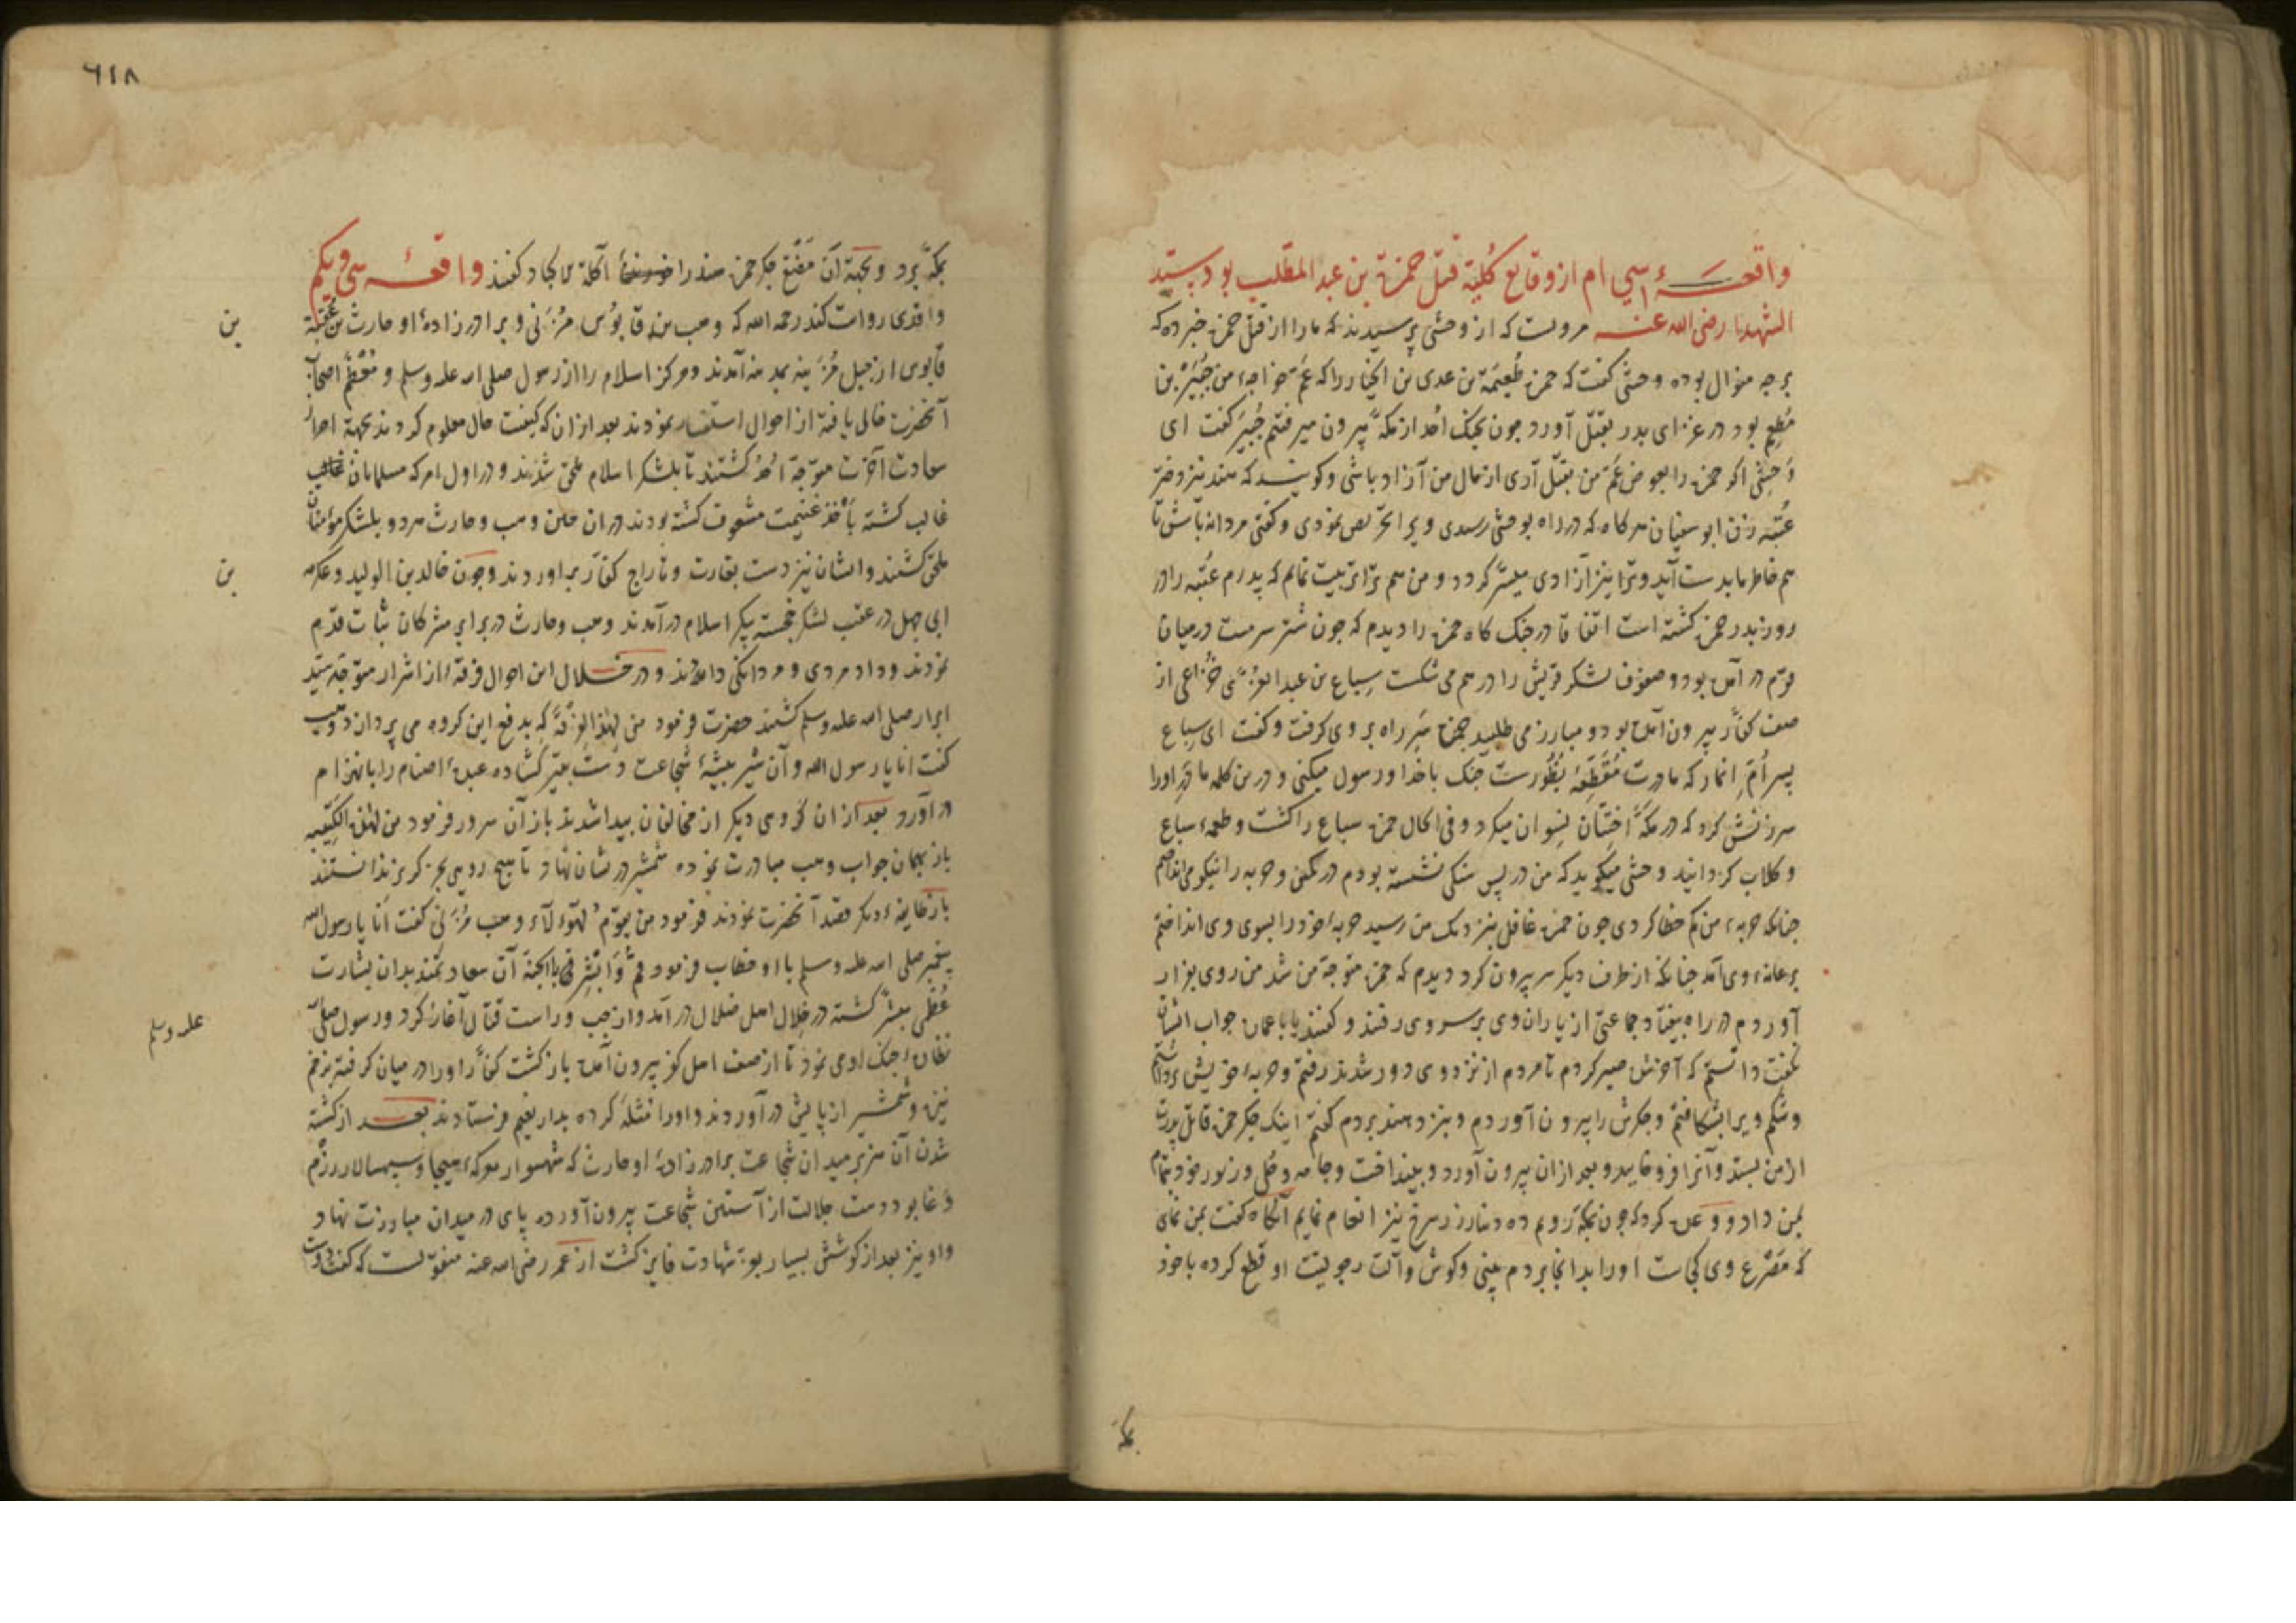 واقعهٔ سی ام از وقایع کلیهٔ قتل حمزة بن عبد المطلب بود سید
الشهدا رضی الله عنه مرویست که از وحشی پرسیدند که ما را از قتل حمزه خبر ده که
بر چه منوال بوده وحشی گفت که حمزه طُعَیمَة بن عدی بن الخیار را که عَمّ خواجهٔ من جُبَیْر بن
مُطعِم بود در غزای بدر بقتل آورد چون بجنک اُحد از مکّه بیرون میرفتم جُبَیر کفت ای
وَحشِی اکر حمزه را بعوض عَمّ من بقتل آری از مال من آزاد باشی و کویند که هند نیز دختر
عُتبه زن ابو سفیان هر کاه که در راه بوحشی رسیدی ویرا تحریص نمودی و کفتی مردانه باش تا
هم خاطر ما بدست آید و ترا نیز آزادی میسّر کردد و من هم ترا تربیت نمایم که پدرم عُتبه را در
روز بدر حمزه کشته است اتفاقا در جنک کاه حمزه را دیدم که چون شتر سرمست در میان
قوم در آمده بود و صفوف لشکر قریش را در هم می شکست سِباع بن عبد العزّی خُزاعی از
صف کفّار بیرون آمده بود و مبارز می طلبید حمزه سَرِ راه بر وی کرفت و کفت ای سِباع
پسر اُمّ اَنمار که مادرت مُقَطِّعهٔ بُظُورست جنک با خدا و رسول میکنی و درین کلمه مادر او را
سرزنش کرد که در مکّه اختتان نسوان میکرد و فی الحال حمزه سباع را کشت و طعمهٔ سباع
و کلاب کردانید وحشی میکوید که من در پس سنکی نشسته بودم در کمین و حربه را نیکو می انداختم
چنانکه حربهٔ من کم خطا کردی چون حمزه غافل بنزدیک من رسید حربهٔ خود را بسوی وی انداختم
بر عانهٔ وی آمد چنانکه از طرف دیکر سر بیرون کرد دیدم که حمزه متوجه من شد من روی بفرار
آوردم در راه بیفتاد جماعتی از یاران وی بر سر وی رفتند و کفتند یابا عماره جواب ایشان
نکفت دانستم که آخر شد صبر کردم تا مردم از نزد وی دور شدند رفتم و حربهٔ خویش برداشتم
و شکم ویرا بشکافتم و جکرش را بیرون آوردم و بنزد هند بردم کفتم اینک جکر حمزه قاتل پدرت
از من بستد و آنرا فرو خایید و بعد از ان بیرون آورد و بینداخت و جامه و حُلی و زیور خود بتمام
بمن داد و وعده کرد که چون بمکّه رویم ده دینار زر سرخ نیز انعام نمایم آنکاه کفت بمن نمای
که مَصْرَع وی کجاست او را بدانجا بردم بینی و کوش و آلت رجولیت او قطع کرده با خود
بمکّه
٦١٨
بمکّه برد و بجهة آن مَضْغ جکر حمزه هند را آکلة الاکباد کفتند واقعهٔ سی و یکم
واقدی روایت کند رحمه الله که وهب بن قابوُس مُزَنی و برادر زادهٔ او حارث بن عُقبَة
بن
قابوس از جبل مُزَینه بمدینه آمدند و مرکز اسلام را از رسول صلی الله علیه وسلم و مُعْظَم اصحاب
آنحضرت خالی یافته از احوال استفسار نمودند بعد از ان که کیفیت حال معلوم کردند بجهة احراز
سعادت آخرت متوجهٔ اُحُد کشتند تا بلشکر اسلام ملحق شدند و در اول امر که مسلمانان
غالب کشته بأخذ غنیمت مشعوف کشته بودند در ان حین وهب و حارث هر دو بلشکر مؤمنان
ملحق کشتند و ایشان نیز دست بغارت و تاراج کفّار بر آوردند و چون خالد بن الولید و عکرمه
بن
ابی جهل در عقب لشکر خجسته پیکر اسلام در آمدند وهب و حارث در برابر مشرکان ثبات قدم
نمودند و داد مردی و مردانکی دادند و در خلال این احوال فرقهٔ از اشرار متوجه سید
ابرار صلی الله علیه وسلم کشتند حضرت فرمود من لِهٰذِه الفِرْقَة که بدفع این کروه می پردازد وهب
کفت انا یا رسول الله و آن شیر بیشهٔ شجاعت دست بتیر کشاده عبدهٔ اصنام را بانهزام
در آورد بعد از ان کروهی دیکر از مخالفان پیدا شدند باز آن سرور فرمود من لهذه الکَتِیبَة
باز بهمان جواب وهب مبادرت نموده شمشیر در ایشان نهاد تا هیچ روی بجز کریز ندانستند
باز طایفهٔ دیکر قصد آنحضرت نمودند فرمود من یقوم لهؤلاء وهب مُزَنی کفت اَنا یا رسول الله
پیغمبر صلی الله علیه وسلم با او خطاب فرمود قُم وَاَبْشِر بالجنّة آن سعادتمند بدان بشارت
عُظمی مبشّر کشته در خلال اهل ضلال در آمد و از چپ و راست قتال آغاز کرد و رسول صلی الله
علیه وسلم
نظارهٔ جنک او می نمود تا از صف اهل کفر بیرون آمده باز کشت کفّار او را در میان کرفته بزخم
نیزه و شمشیر از پایش در آوردند و او را مُثلَه کرده بدار نعیم فرستادند بعد از کشته
شدن آن هزبر میدان شجاعت برادر زادهٔ او حارث که شهسوار معرکهٔ هیجا و سپهسالار رزم
وغا بود دست جلالت از آستین شجاعت بیرون آورده پای در میدان مبارزت نهاد
و او نیز بعد از کوشش بسیار برتبهٔ شهادت فایز کشت از عمر رضی الله عنه منقولست که کفت